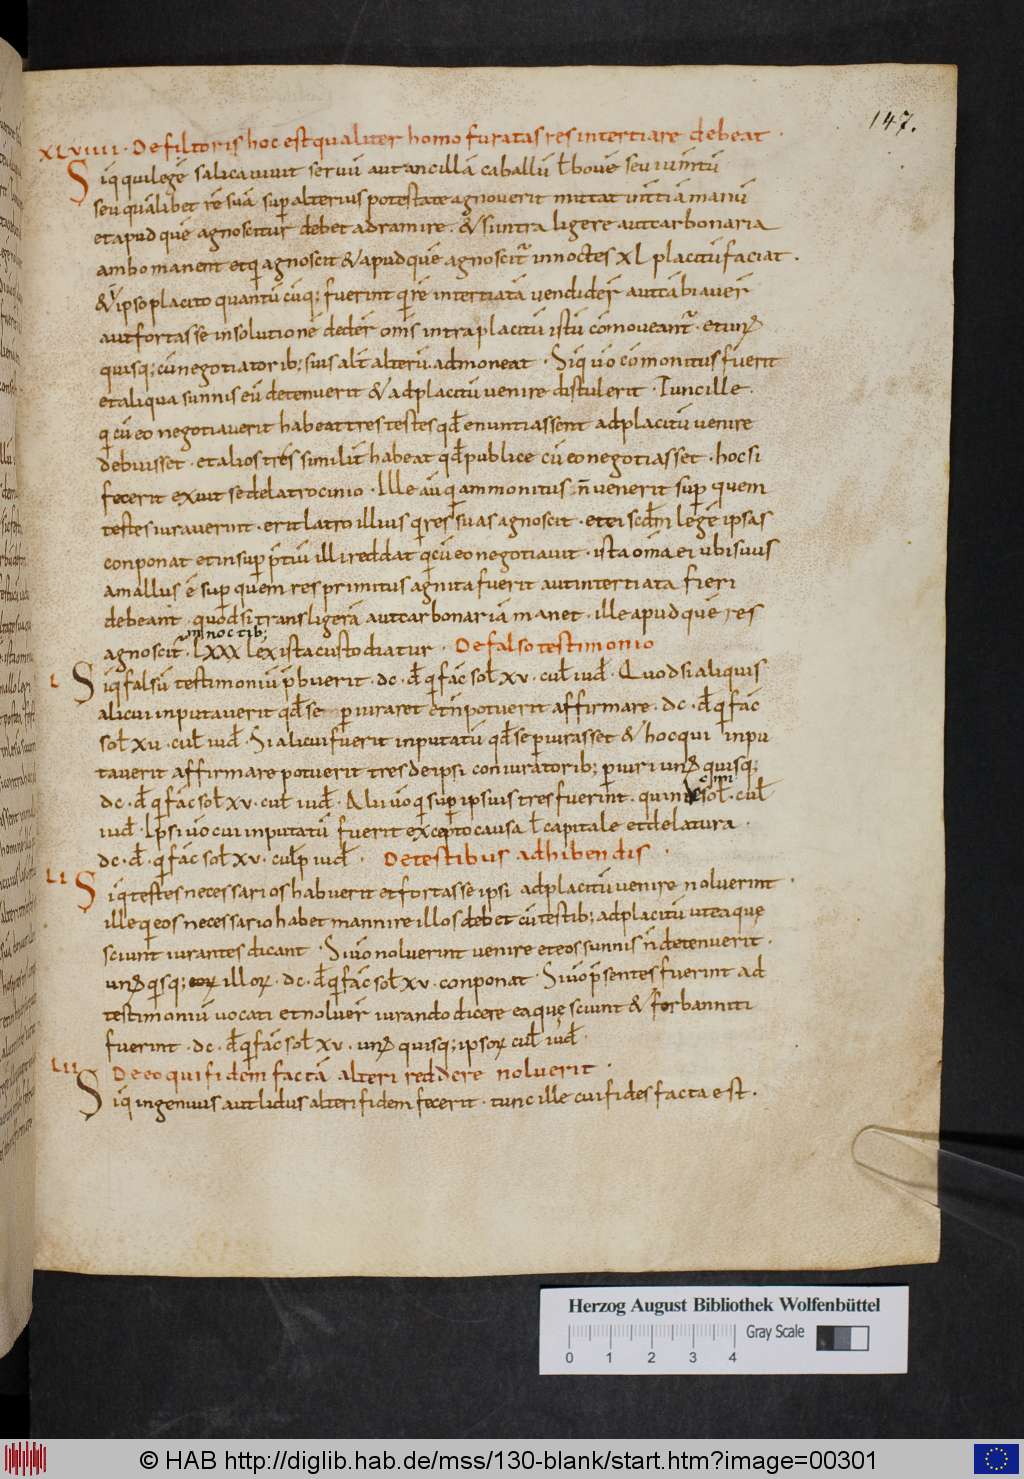 147.
XLVIIII · De filtoris hoc est qualiter homo furatas res intertiare debeat ·
Siq̄ qui legē salica vivit servū aut ancillā caballū ł bovē seu iumtū
seu quālibet rē suā sup̄ alterius potestate agnoverit mittat in tiā manū
et apud quē agnoscitur debet adramire · & si intra ligere aut carbonaria
ambo manent et q̄ agnoscit & apud quē agnoscit̄ in noctes XL placitū faciat ·
& in ipso placito quantū cūq; fuerint q̄ rē intertiatā vendider̄ aut cābiaver̄
aut fortasse in solutionē deder̄ om̄s intra placitū istū cōmoveant̄ · et un
quisq; cū negotiatorib; suis alt̄ alterū admoneat · Siq̄ v̄o cōmonitus fuerit
et aliqua sunnis eū detenuerit & ad placitū venire distulerit · Tunc ille ·
q̄ cū eo negotiaverit habeat tres testes qđ enuntiassent ad placitū venire
debuisset · et alios tres similit̄ habeat qđ publice cū eo negotiasset · hoc si
fecerit exuit se de latrocinio · Ille aū q̄ ammonitus n̄ venerit sup̄ quem
testes iuraverint · erit latro illius q̄ res suas agnoscit · et ei scdm̄ legē ipsas
conponat et insup̄ p̄tiū illi reddat q̄ cū eo negotiavit · ista om̄a ei ubi suus
amallus ē sup̄ quem res primitus agnita fuerit aut intertiata fieri
debeant · quod si trans ligerā aut carbonariā manet · ille apud quē res
in noctib;
agnoscit · LXXX lex ista custodiatur · De falso testimonio
L Siq̄ falsū testimoniū p̄buerit · dc · đ q̄ fac̄ soł xv · cuł iuđ · Quod si aliquis
alicui inputaverit qđ se periuraret et n̄ potuerit affirmare · dc · đ q̄ fac̄
soł xv · cuł iuđ · Si alicui fuerit inputatū qđ se periurasset & hoc qui inpu
taverit affirmare potuerit tres de ipsi coniuratorib; periuri un quisq;
dc · đ q̄ fac̄ soł xv · cuł iuđ · Alii v̄o q̄ sup̄ ipsius tres fuerint · quini soł · cuł
iuđ · Ipsi v̄o cui inputatū fuerit excepto causa ł capitale et delatura ·
dc · đ · q̄ fac̄ soł xv · culp̄ iuđ · De testibus adhibendis ·
LI Siq̄ testes necessarios habuerit et fortasse ipsi ad placitū venire noluerint ·
ille q̄ eos necessario habet mannire illos debet cū testib; ad placitū ut ea quę
sciunt iurantes dicant · Si v̄o noluerint venire et eos sunnis n̄ detenuerit ·
un q̄sq; illoꝝ · dc · đ q̄ fac̄ soł xv · conponat · Si v̄o p̄sentes fuerint ad
testimoniū vocati et noluer̄ iurando dicere ea quę sciunt & forbanniti
fuerint · dc · đ q̄ fac̄ soł xv · un quisq; ipsoꝝ cuł iuđ ·
LII De eo qui fidem factā alteri reddere noluerit ·
Siq̄ ingenuus aut lidus alteri fidem fecerit · tunc ille cui fides facta est ·
Herzog August Bibliothek Wolfenbüttel
Gray Scale
0 1 2 3 4
© HAB http://diglib.hab.de/mss/130-blank/start.htm?image=00301